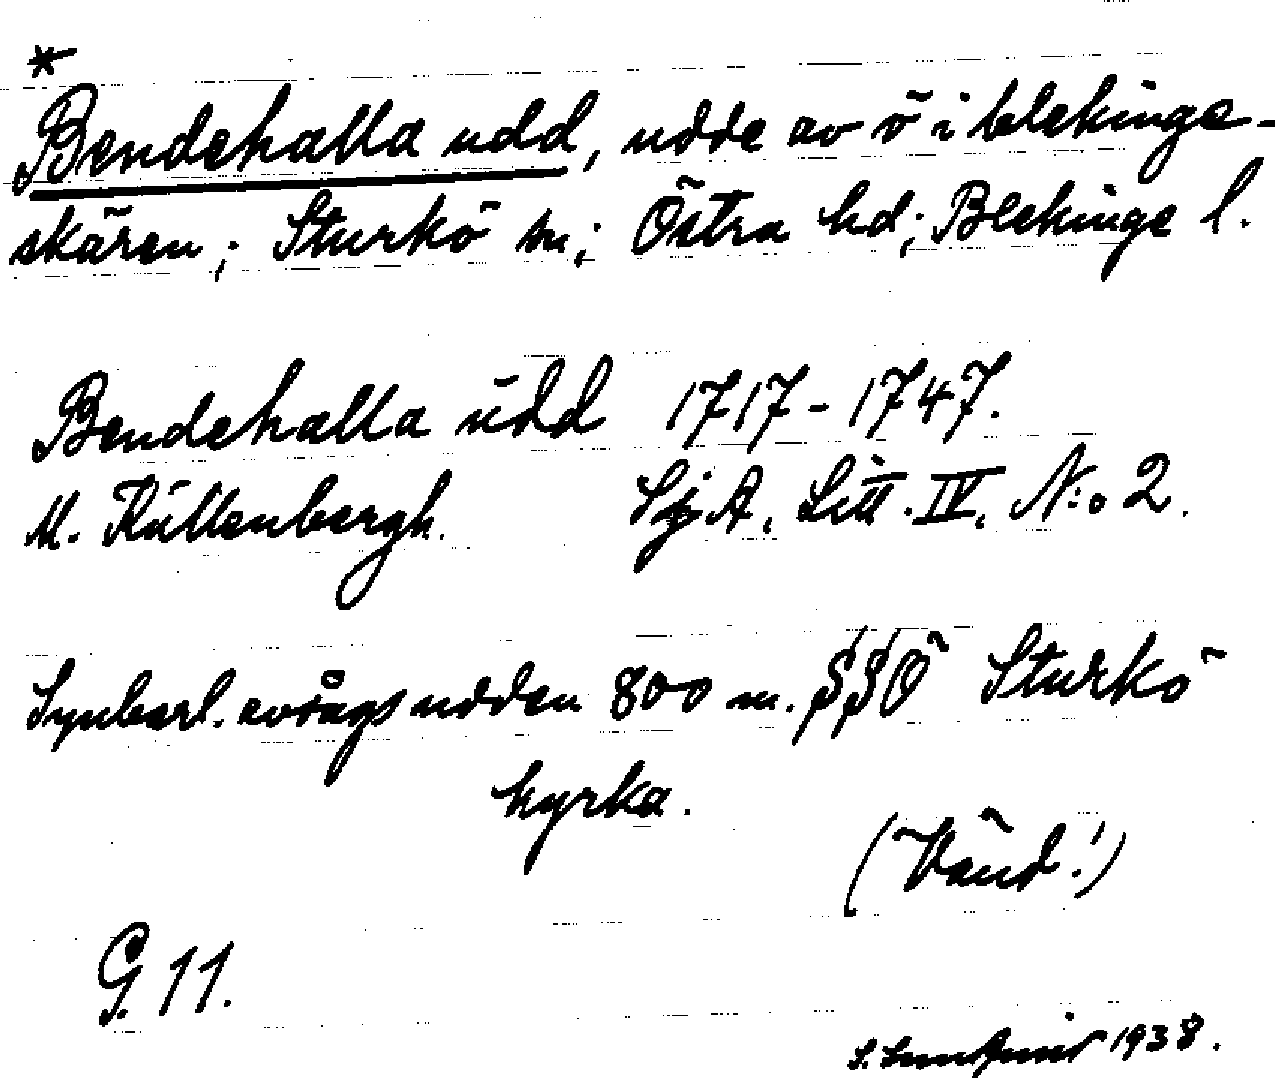 *
Bendehalla udd, udde av ö i blekinge-
skären; Sturkö sn; Östra hd; Blekinge l.
Bendehalla udd 1717-1747.
M. Küllenbergh. Sj A, Litt. IV, N:o 2.
Synbarl. avsågs udden 800 m. SSÖ Sturkö
kyrka.
(Vänd!)
G. 11.
1938.